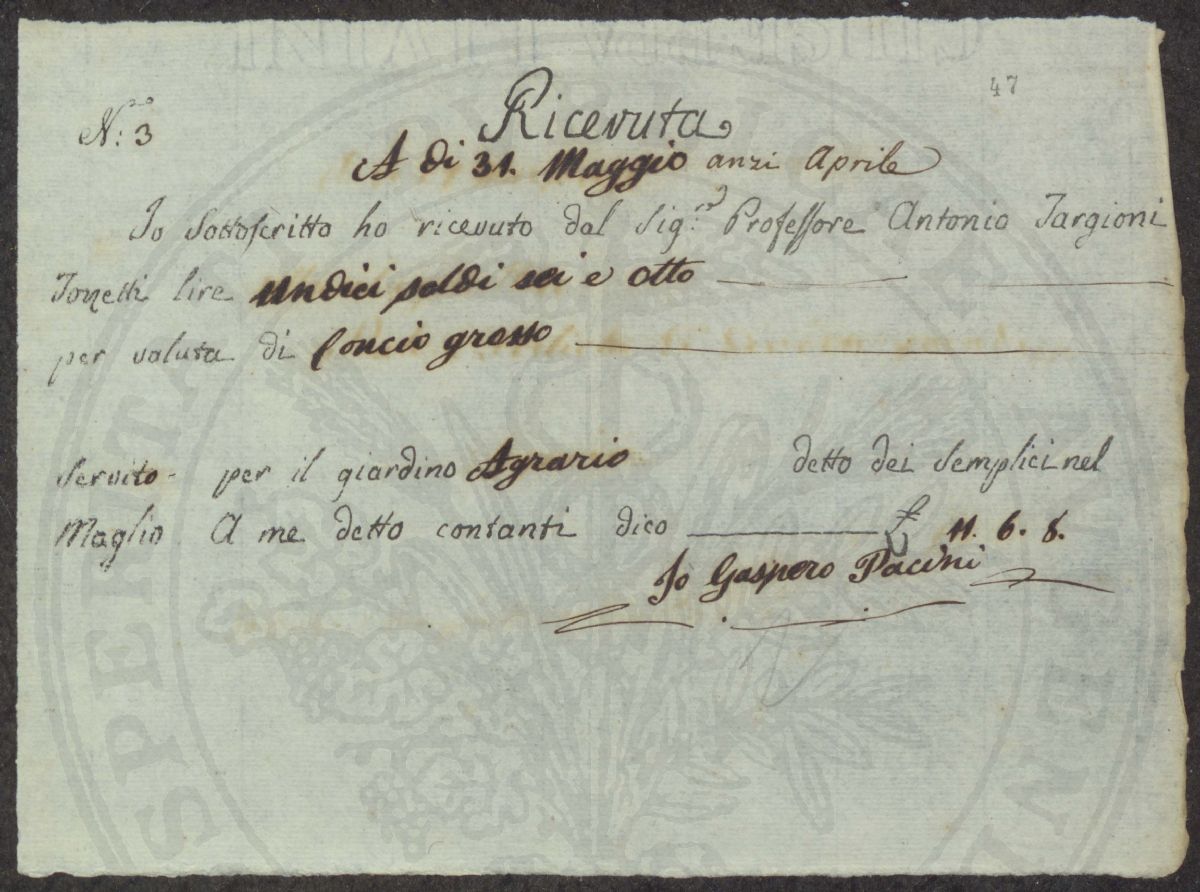 47
N:º 3
Ricevuta
A dì 31. Maggio anzi Aprile
Io Sottoscritto ho ricevuto dal Sig:re Professore Antonio Targioni
Tozzetti lire undici soldi sei e otto
per valuta di Concio grosso
servito per il giardino Agrario detto dei Semplici nel
Maglio A me detto contanti dico £ 11. 6. 8.
Io Gaspero Pacini